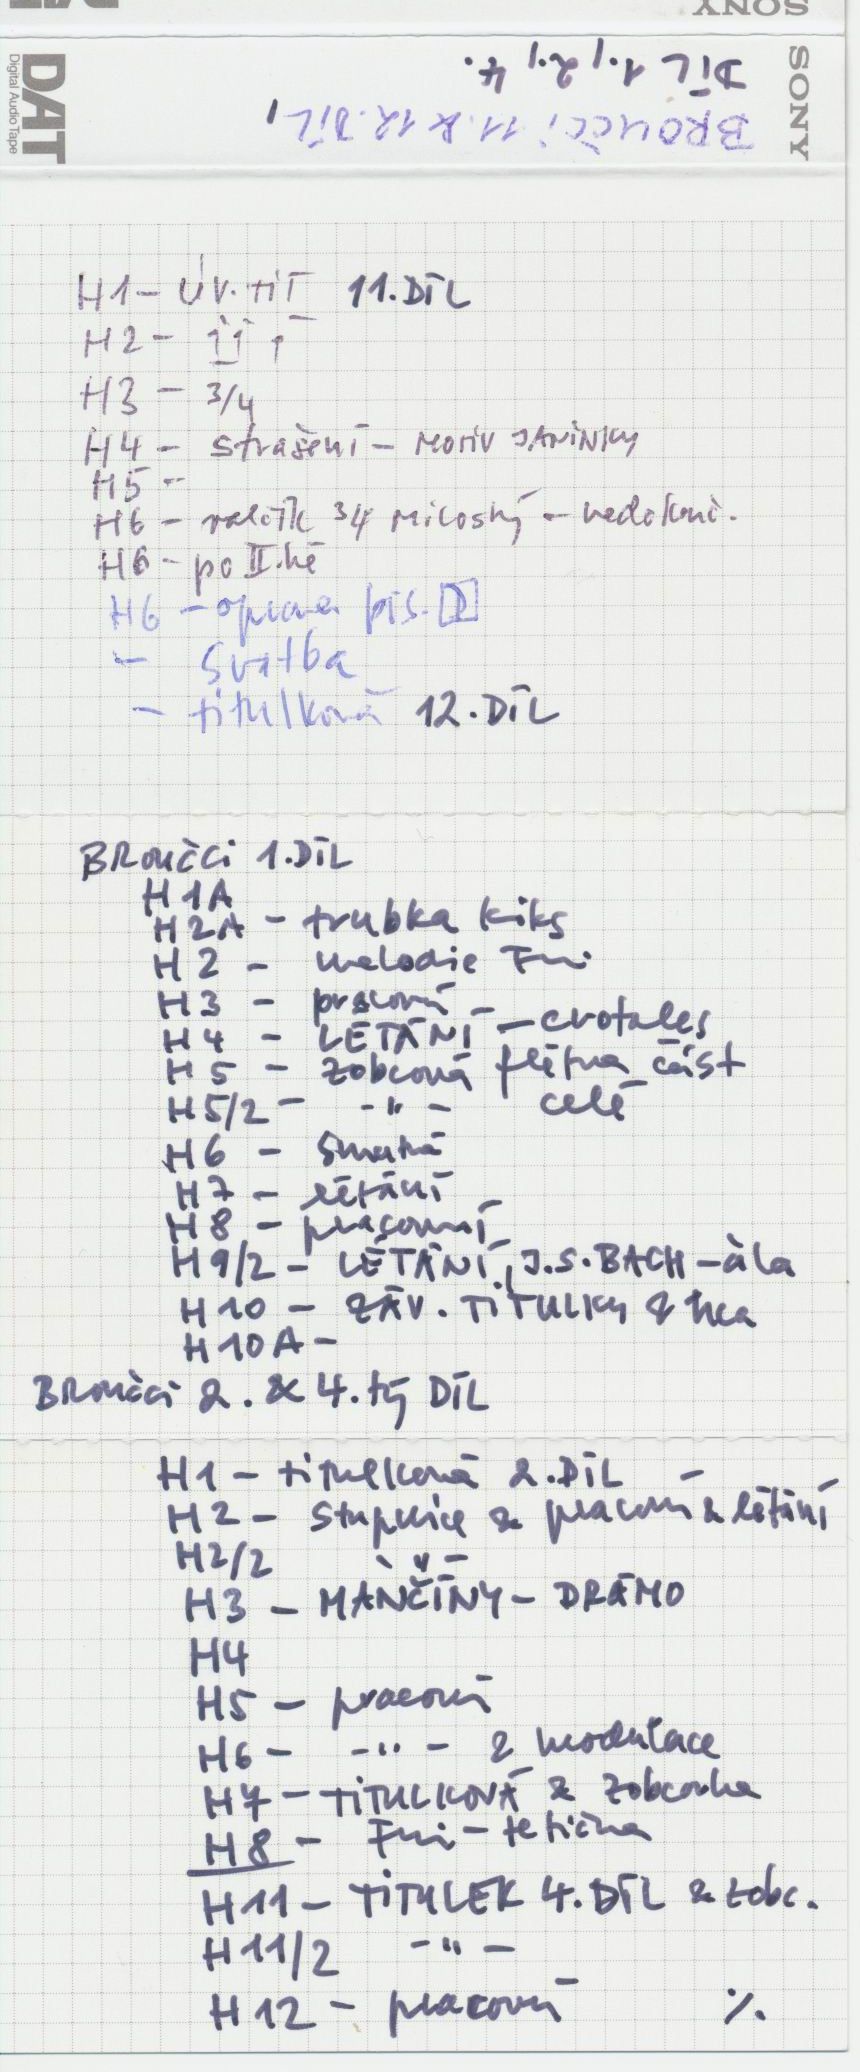 SONY
SONY
DAT
Digital Audio Tape
BROUČCI 11. & 12. DÍL,
DÍL 1., 2., 4.
H1 - ÚV. TIT 11. DÍL
H2 -
H3 - 3/4
H4 - strašení - MOTIV JANINKY
H5 -
H6 - valčík 3/4 Milostný - nedokonč.
H6 - po II.hé
H6 - oprava pís.
- Svatba
- titulková 12. DÍL
BROUČCI 1. DÍL
H1A
H2A - trubka kiks
H2 - melodie Fni
H3 - pracovní
H4 - LÉTÁNÍ - crotales
H5 - zobcová flétna část
H5/2 - -"- celé
H6 - smutná
H7 - létání
H8 - pracovní
H9/2 - LÉTÁNÍ, J.S. BACH - àla
H10 - ZÁV. TITULKY & hra
H10A -
BROUČCI 2. & 4. tý DÍL
H1 - titulková 2. DÍL
H2 - stupnice & pracovní & létání
H2/2 -"-
H3 - MANČINY - DRÁMO
H4
H5 - pracovní
H6 - -"- 2 modulace
H7 - TITULKOVÁ & zobcovka
H8 - Fni - tetička
H11 - TITULEK 4. DÍL & zobc.
H11/2 -"-
H12 - pracovní ./.